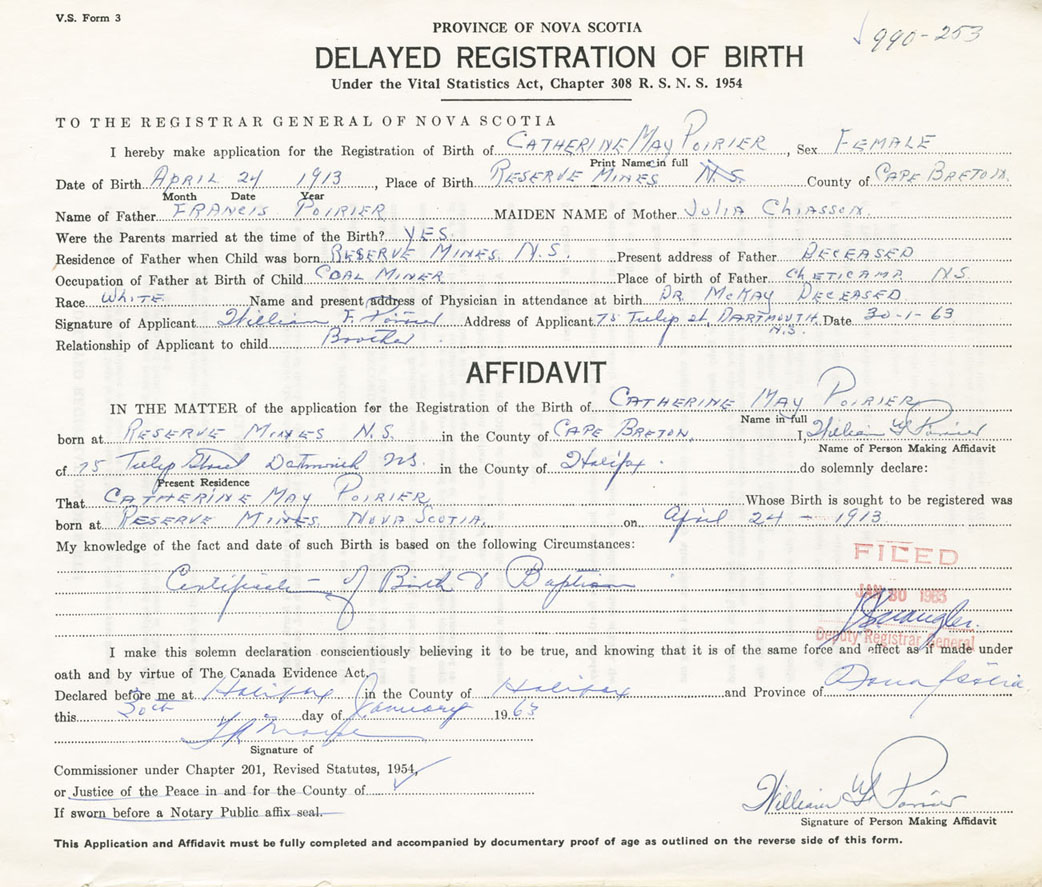 V.S. Form 3
PROVINCE OF NOVA SCOTIA
990-253
DELAYED REGISTRATION OF BIRTH
Under the Vital Statistics Act, Chapter 308 R. S. N. S. 1954
TO THE REGISTRAR GENERAL OF NOVA SCOTIA
I hereby make application for the Registration of Birth of CATHERINE MAY POIRIER, Sex FEMALE
Print Name in full
Date of Birth APRIL 24 1913, Place of Birth RESERVE MINES N.S. County of CAPE BRETON.
Month Date Year
Name of Father FRANCIS POIRIER MAIDEN NAME of Mother JULIA CHIASSON.
Were the Parents married at the time of the Birth? YES.
Residence of Father when Child was born RESERVE MINES N.S. Present address of Father DECEASED
Occupation of Father at Birth of Child COAL MINER Place of birth of Father CHETICAMP N.S.
Race WHITE Name and present address of Physician in attendance at birth DR. McKAY DECEASED
Signature of Applicant William F. Poirier Address of Applicant 75 Tulip St, DARTMOUTH, N.S. Date 30-1-63
Relationship of Applicant to child Brother
AFFIDAVIT
IN THE MATTER of the application for the Registration of the Birth of CATHERINE MAY POIRIER
Name in full
born at RESERVE MINES N.S. in the County of CAPE BRETON. I William F. Poirier
Name of Person Making Affidavit
of 75 Tulip Street Dartmouth NS. in the County of Halifax. do solemnly declare:
Present Residence
That CATHERINE MAY POIRIER Whose Birth is sought to be registered was
born at RESERVE MINES NOVA SCOTIA. on April 24 - 1913
My knowledge of the fact and date of such Birth is based on the following Circumstances:
Certificate of Birth & Baptism
FILED
JAN 30 1963
Deputy Registrar General
I make this solemn declaration conscientiously believing it to be true, and knowing that it is of the same force and effect as if made under
oath and by virtue of The Canada Evidence Act.
Declared before me at Halifax in the County of Halifax and Province of Nova Scotia
this 30th day of January 1963
Signature of
Commissioner under Chapter 201, Revised Statutes, 1954,
or Justice of the Peace in and for the County of
If sworn before a Notary Public affix seal.
William F. Poirier
Signature of Person Making Affidavit
This Application and Affidavit must be fully completed and accompanied by documentary proof of age as outlined on the reverse side of this form.